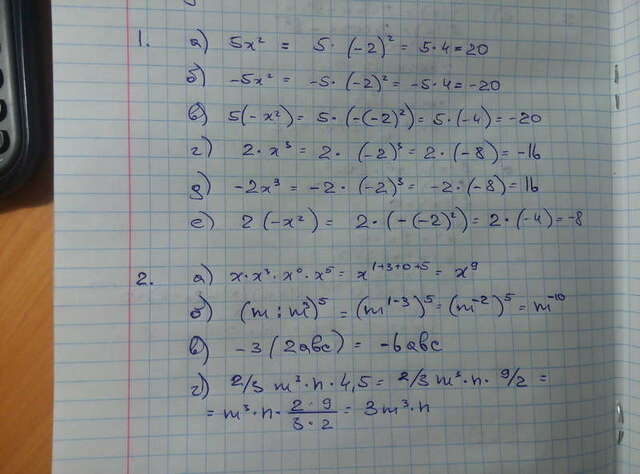 1. а) 5x² = 5·(-2)² = 5·4=20
б) -5x² = -5·(-2)² = -5·4=-20
в) 5(-x²) = 5·(-(-2)²) = 5·(-4) = -20
г) 2·x³ = 2·(-2)³ = 2·(-8) = -16
д) -2x³ = -2·(-2)³ = -2·(-8) = 16
е) 2(-x²) = 2·(-(-2)²) = 2·(-4) = -8
2. а) x·x³·x⁰·x⁵ = x¹⁺³⁺⁰⁺⁵ = x⁹
б) (m:m³)⁵ = (m¹⁻³)⁵ = (m⁻²)⁵ = m⁻¹⁰
в) -3(2abc) = -6abc
г) 2/3 m³·n·4,5 = 2/3 m³·n·9/2 =
= m³·n· (2·9)/(3·2) = 3m³·n